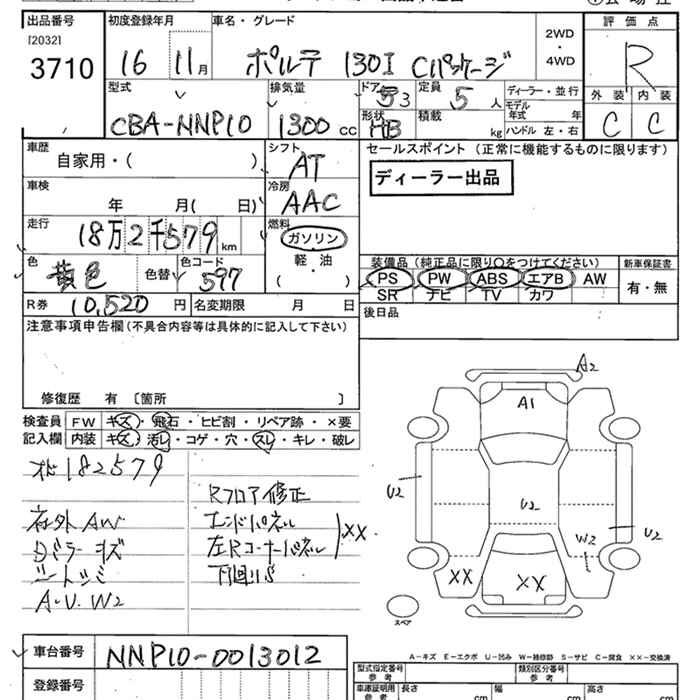 出品番号 初度登録年月 車名・グレード 評価点
[2032]
3710 16 11月 ポルテ 130I Cパッケージ 2WD・4WD R
型式 排気量 ドア 定員 ディーラー・並行 外装 内装
CBA-NNP10 1300cc 3 5人 モデル年式 年 C C
形状 HB 積載 kg ハンドル 左・右
車歴 シフト セールスポイント(正常に機能するものに限ります)
自家用・( ) AT
ディーラー出品
車検 冷房
年 月( 日) AAC
走行 燃料
18万2千579km ガソリン
軽・油
( )
色 色替 色コード 装備品(純正品に限り○をつけてください) 新車保証書
黄色 597 PS PW ABS エアB AW 有・無
SR ナビ TV カワ
R券 10,520円 名変期限 月 日 後日品
注意事項申告欄(不具合内容等は具体的に記入して下さい)
修復歴 有〔箇所 〕
検査員 FW キズ・飛石・ヒビ割・リペア跡・×要
記入欄 内装 キズ・汚レ・コゲ・穴・スレ・キレ・破レ
182579
Rフロア修正
社外AW エンドパネル
左Rコーナーパネル XX
キズ 下回りS
A・U・W2
A2
A1
U2 U2 U2
W2
XX XX
スペア
A-キズ E-エクボ U-凹み W-補修跡 S-サビ C-腐食 XX-交換済
車台番号 NNP10-0013012
登録番号
型式指定番号 参考 類別区分番号 参考
車庫証明用 参考 長さ cm 幅 cm 高さ cm